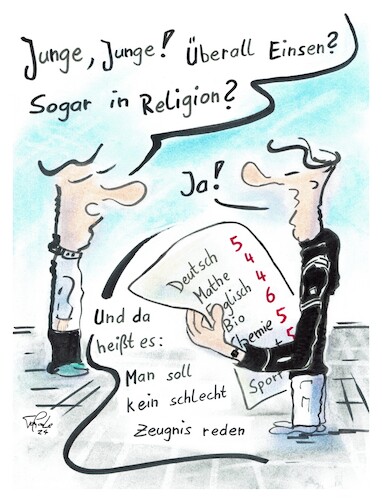 Junge, Junge! Überall Einsen?
Sogar in Religion?
Ja!
Deutsch 5
Mathe 4
Englisch 4
Bio 6
Chemie 5
5
Sport
Und da
heißt es:
Man soll
kein schlecht
Zeugnis reden
24